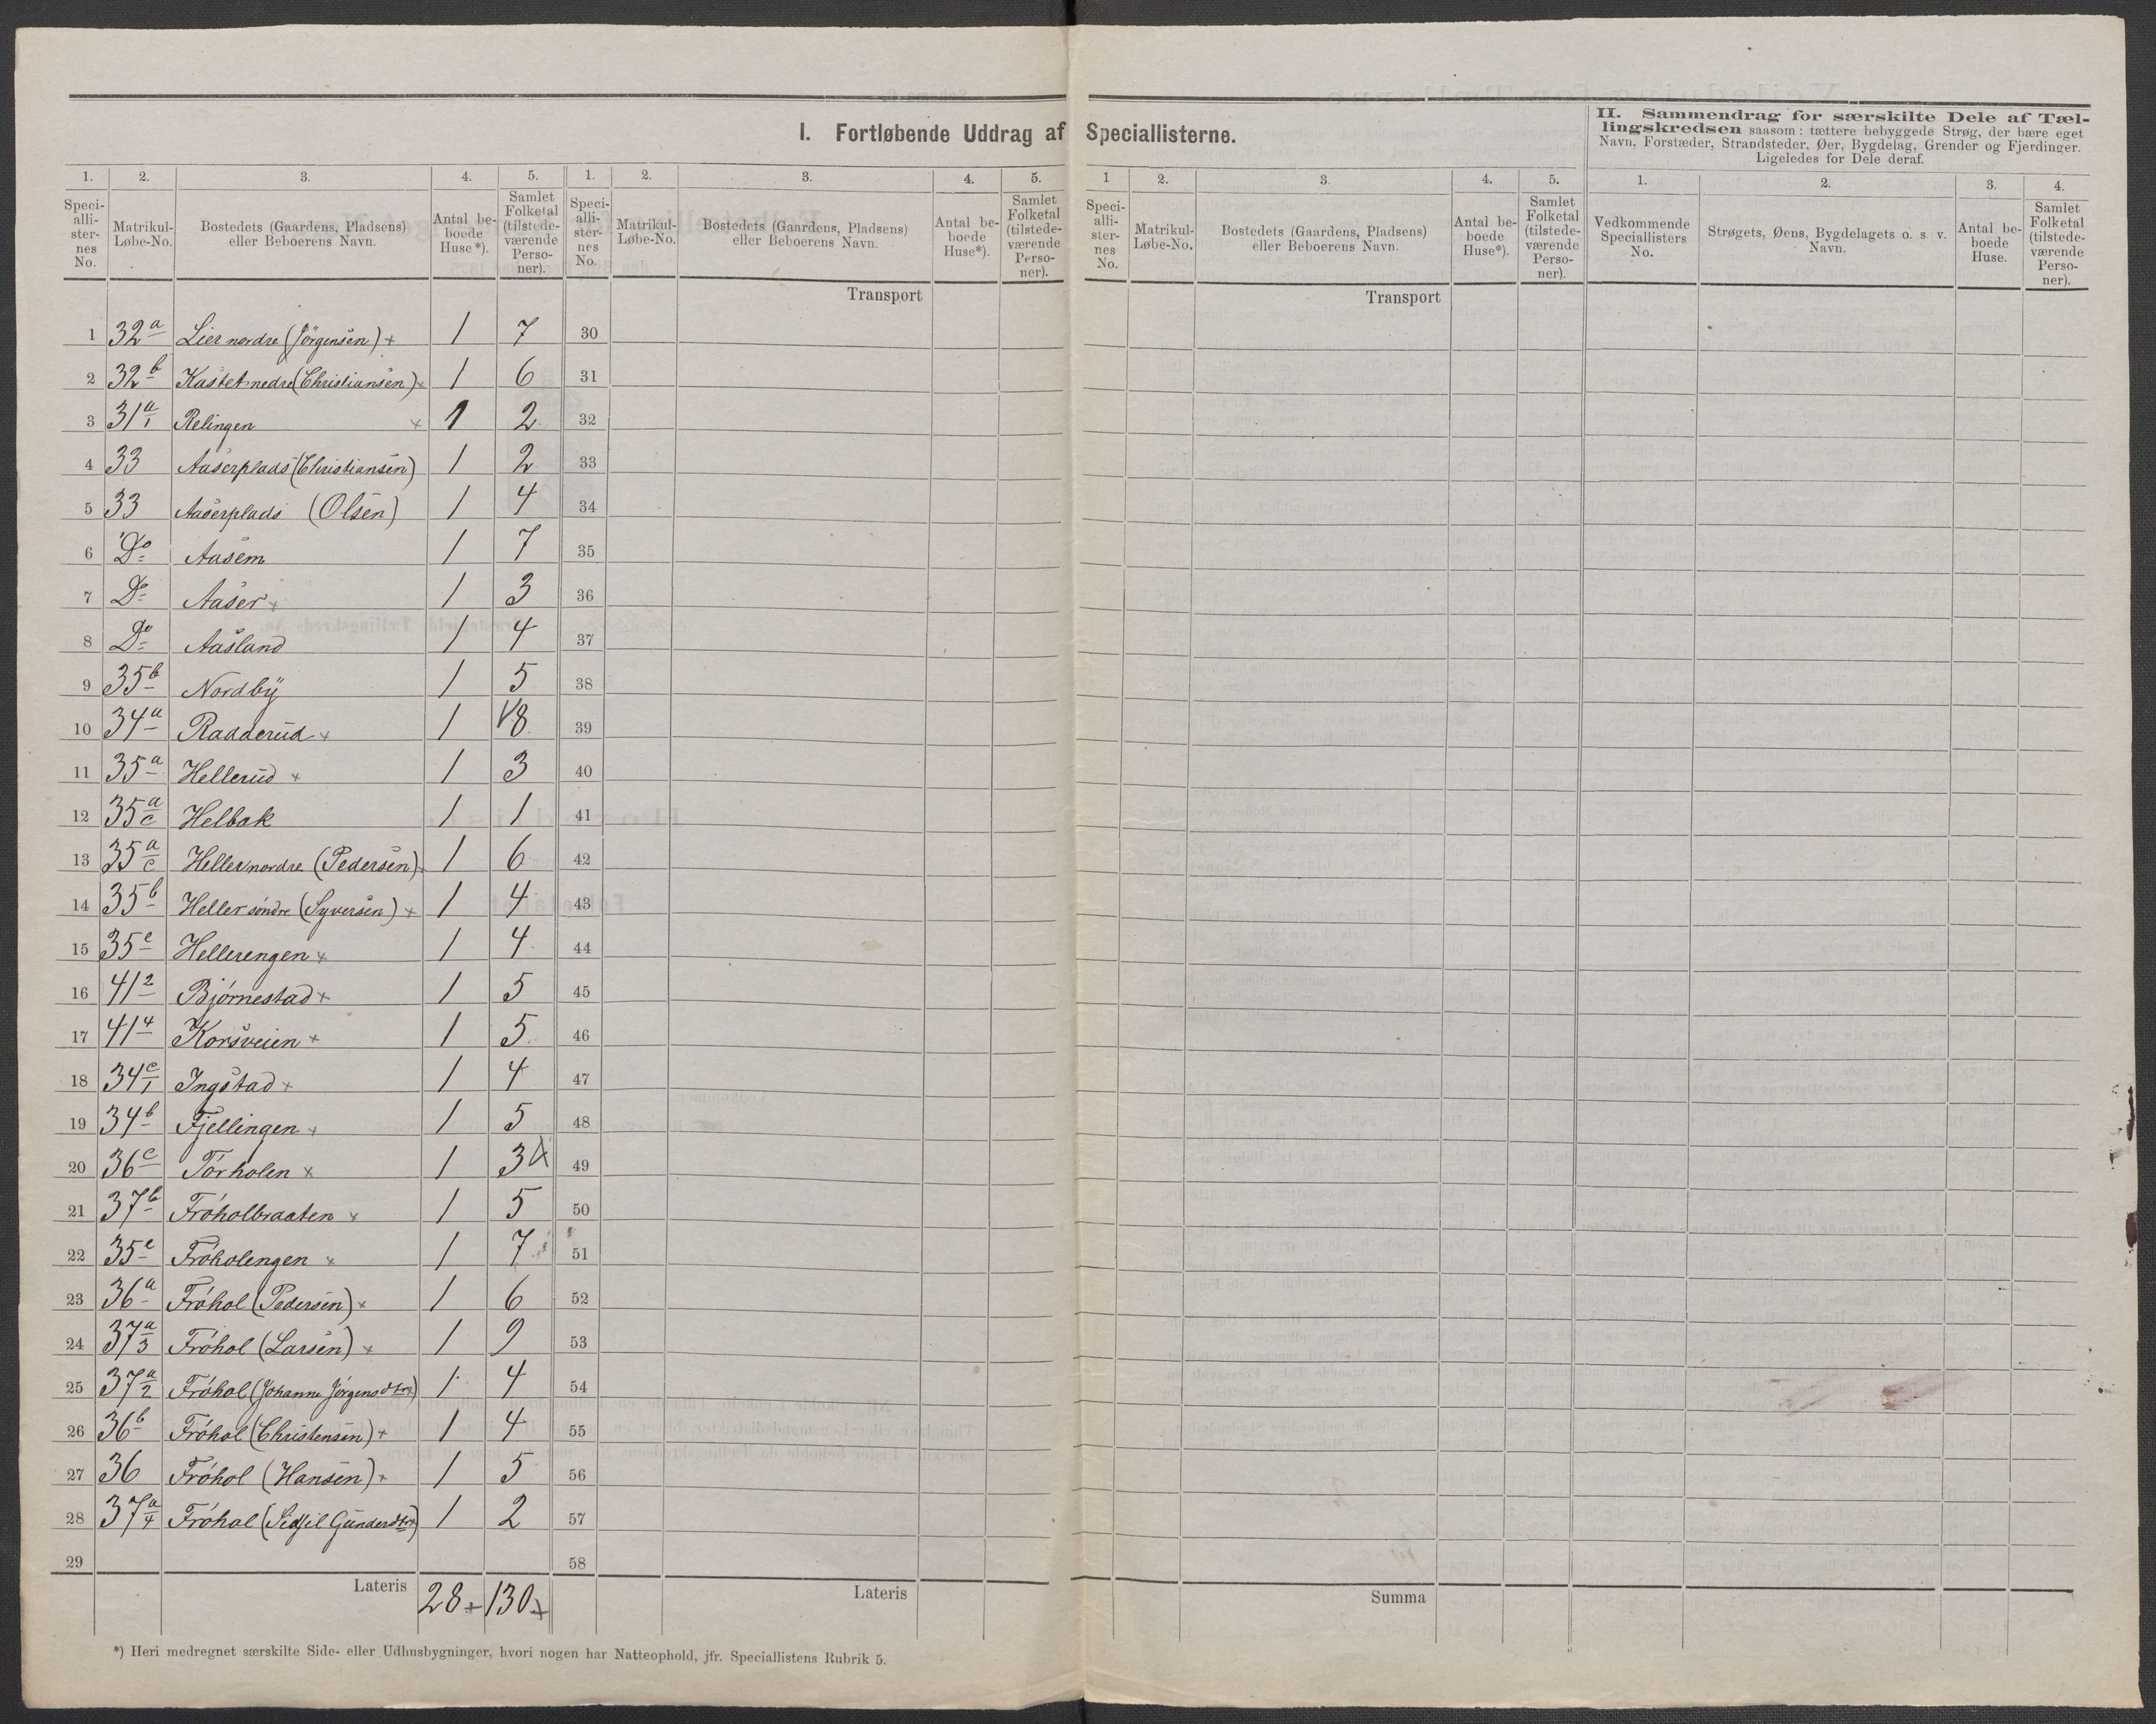 I. Fortløbende Uddrag af Speciallisterne.
II. Sammendrag for særskilte Dele af Tæl-
lingskredsen saasom: tættere bebyggede Strøg, der bære eget
Navn, Forstæder, Strandsteder, Øer, Bygdelag, Grender og Fjerdinger.
Ligeledes for Dele deraf.
1. 2. 3. 4. 5. 1. 2. 3. 4. 5. 1 2. 3. 4. 5. 1. 2. 3. 4.
Speci-alli-ster-nes No. Matrikul-Løbe-No. Bostedets (Gaardens, Pladsens) eller Beboerens Navn. Antal be-boede Huse*). Samlet Folketal (tilstede-værende Perso-ner).
Speci-alli-ster-nes No. Matrikul-Løbe-No. Bostedets (Gaardens, Pladsens) eller Beboerens Navn. Antal be-boede Huse*). Samlet Folketal (tilstede-værende Perso-ner).
Speci-alli-ster-nes No. Matrikul-Løbe-No. Bostedets (Gaardens, Pladsens) eller Beboerens Navn. Antal be-boede Huse*). Samlet Folketal (tilstede-værende Perso-ner).
Vedkommende Speciallisters No. Strøgets, Øens, Bygdelagets o. s. v. Navn. Antal be-boede Huse. Samlet Folketal (tilstede-værende Perso-ner).
Transport Transport
1 32a Lier nordre (Jörgensen) + 1 7 30
2 32b Kastet nedre (Christiansen) x 1 6 31
3 31a/1 Relingen x 1 2 32
4 33 Aaserplads (Christiansen) 1 2 33
5 33 Aaserplads (Olsen) 1 4 34
6 Do Aasem 1 7 35
7 Do Aaser x 1 3 36
8 Do Aasland 1 4 37
9 35b Nordby 1 5 38
10 34a Radderud x 1 8 39
11 35a Hellerud x 1 3 40
12 35a/c Helbak 1 1 41
13 35a/c Heller nordre (Pedersen) 1 6 42
14 35b Heller söndre (Syversen) x 1 4 43
15 35e Hellerengen x 1 4 44
16 41 2 Björnestad x 1 5 45
17 41 4 Korsveien x 1 5 46
18 34c/1 Ingstad x 1 4 47
19 34b Fjellingen x 1 5 48
20 36c Törholen x 1 3 4 49
21 37b Fröholbraaten x 1 5 50
22 35e Fröholengen x 1 7 51
23 36a Fröhol (Pedersen) x 1 6 52
24 37a/3 Fröhol (Larsen) x 1 9 53
25 37a/2 Fröhol (Johanne Jörgensdtr) 1 4 54
26 36b Fröhol (Christensen) x 1 4 55
27 36 Fröhol (Hansen) x 1 5 56
28 37a/4 Fröhol (Sidsil Gundersdtr) 1 2 57
29 58
Lateris 28 + 130 + Lateris Summa
*) Heri medregnet særskilte Side- eller Udhusbygninger, hvori nogen har Natteophold, jfr. Speciallistens Rubrik 5.